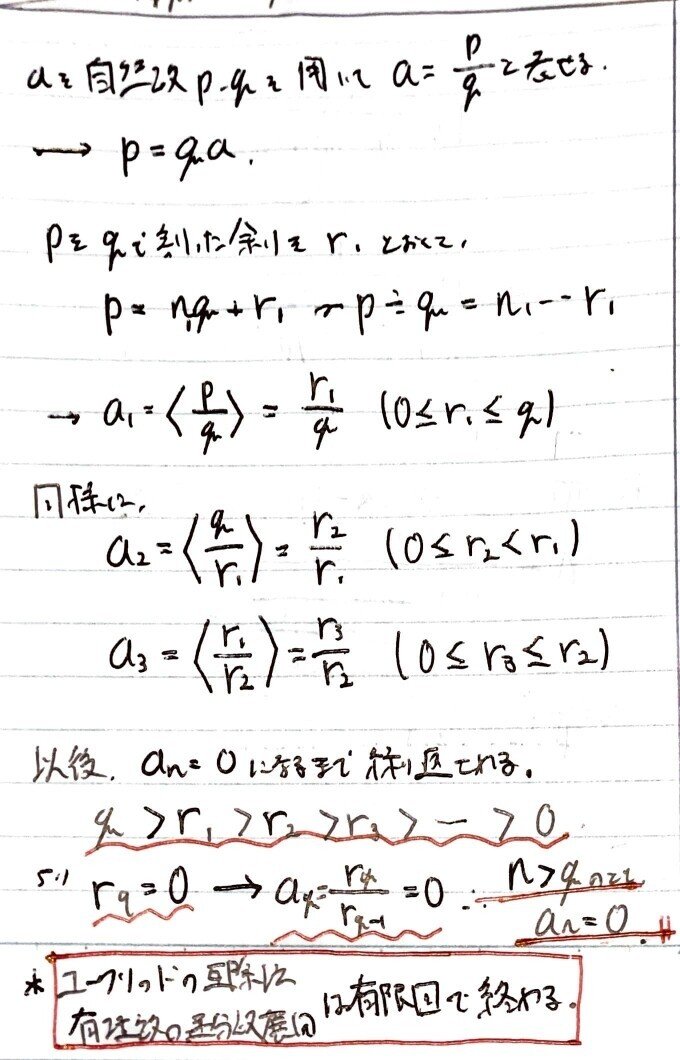 aを自然数p.qを用いて a = p/q と表せる.
→ p = qa.
pをqで割った余りを r₁ とおくと,
p = n₁q + r₁ ~ p ÷ q = n₁ -- r₁
→ a₁ = ⟨p/q⟩ = r₁/q (0 ≤ r₁ ≤ q)
同様に,
a₂ = ⟨q/r₁⟩ = r₂/r₁ (0 ≤ r₂ < r₁)
a₃ = ⟨r₁/r₂⟩ = r₃/r₂ (0 ≤ r₃ ≤ r₂)
以後, aₙ = 0 になるまで繰り返される.
q > r₁ > r₂ > r₃ > ― > 0
より r_q = 0 → a_q = r_q/r_{q-1} = 0 ∴ n > q のとき
aₙ = 0. #
* ユークリッドの互除法
有理数の連分数展開 は有限回で終わる.